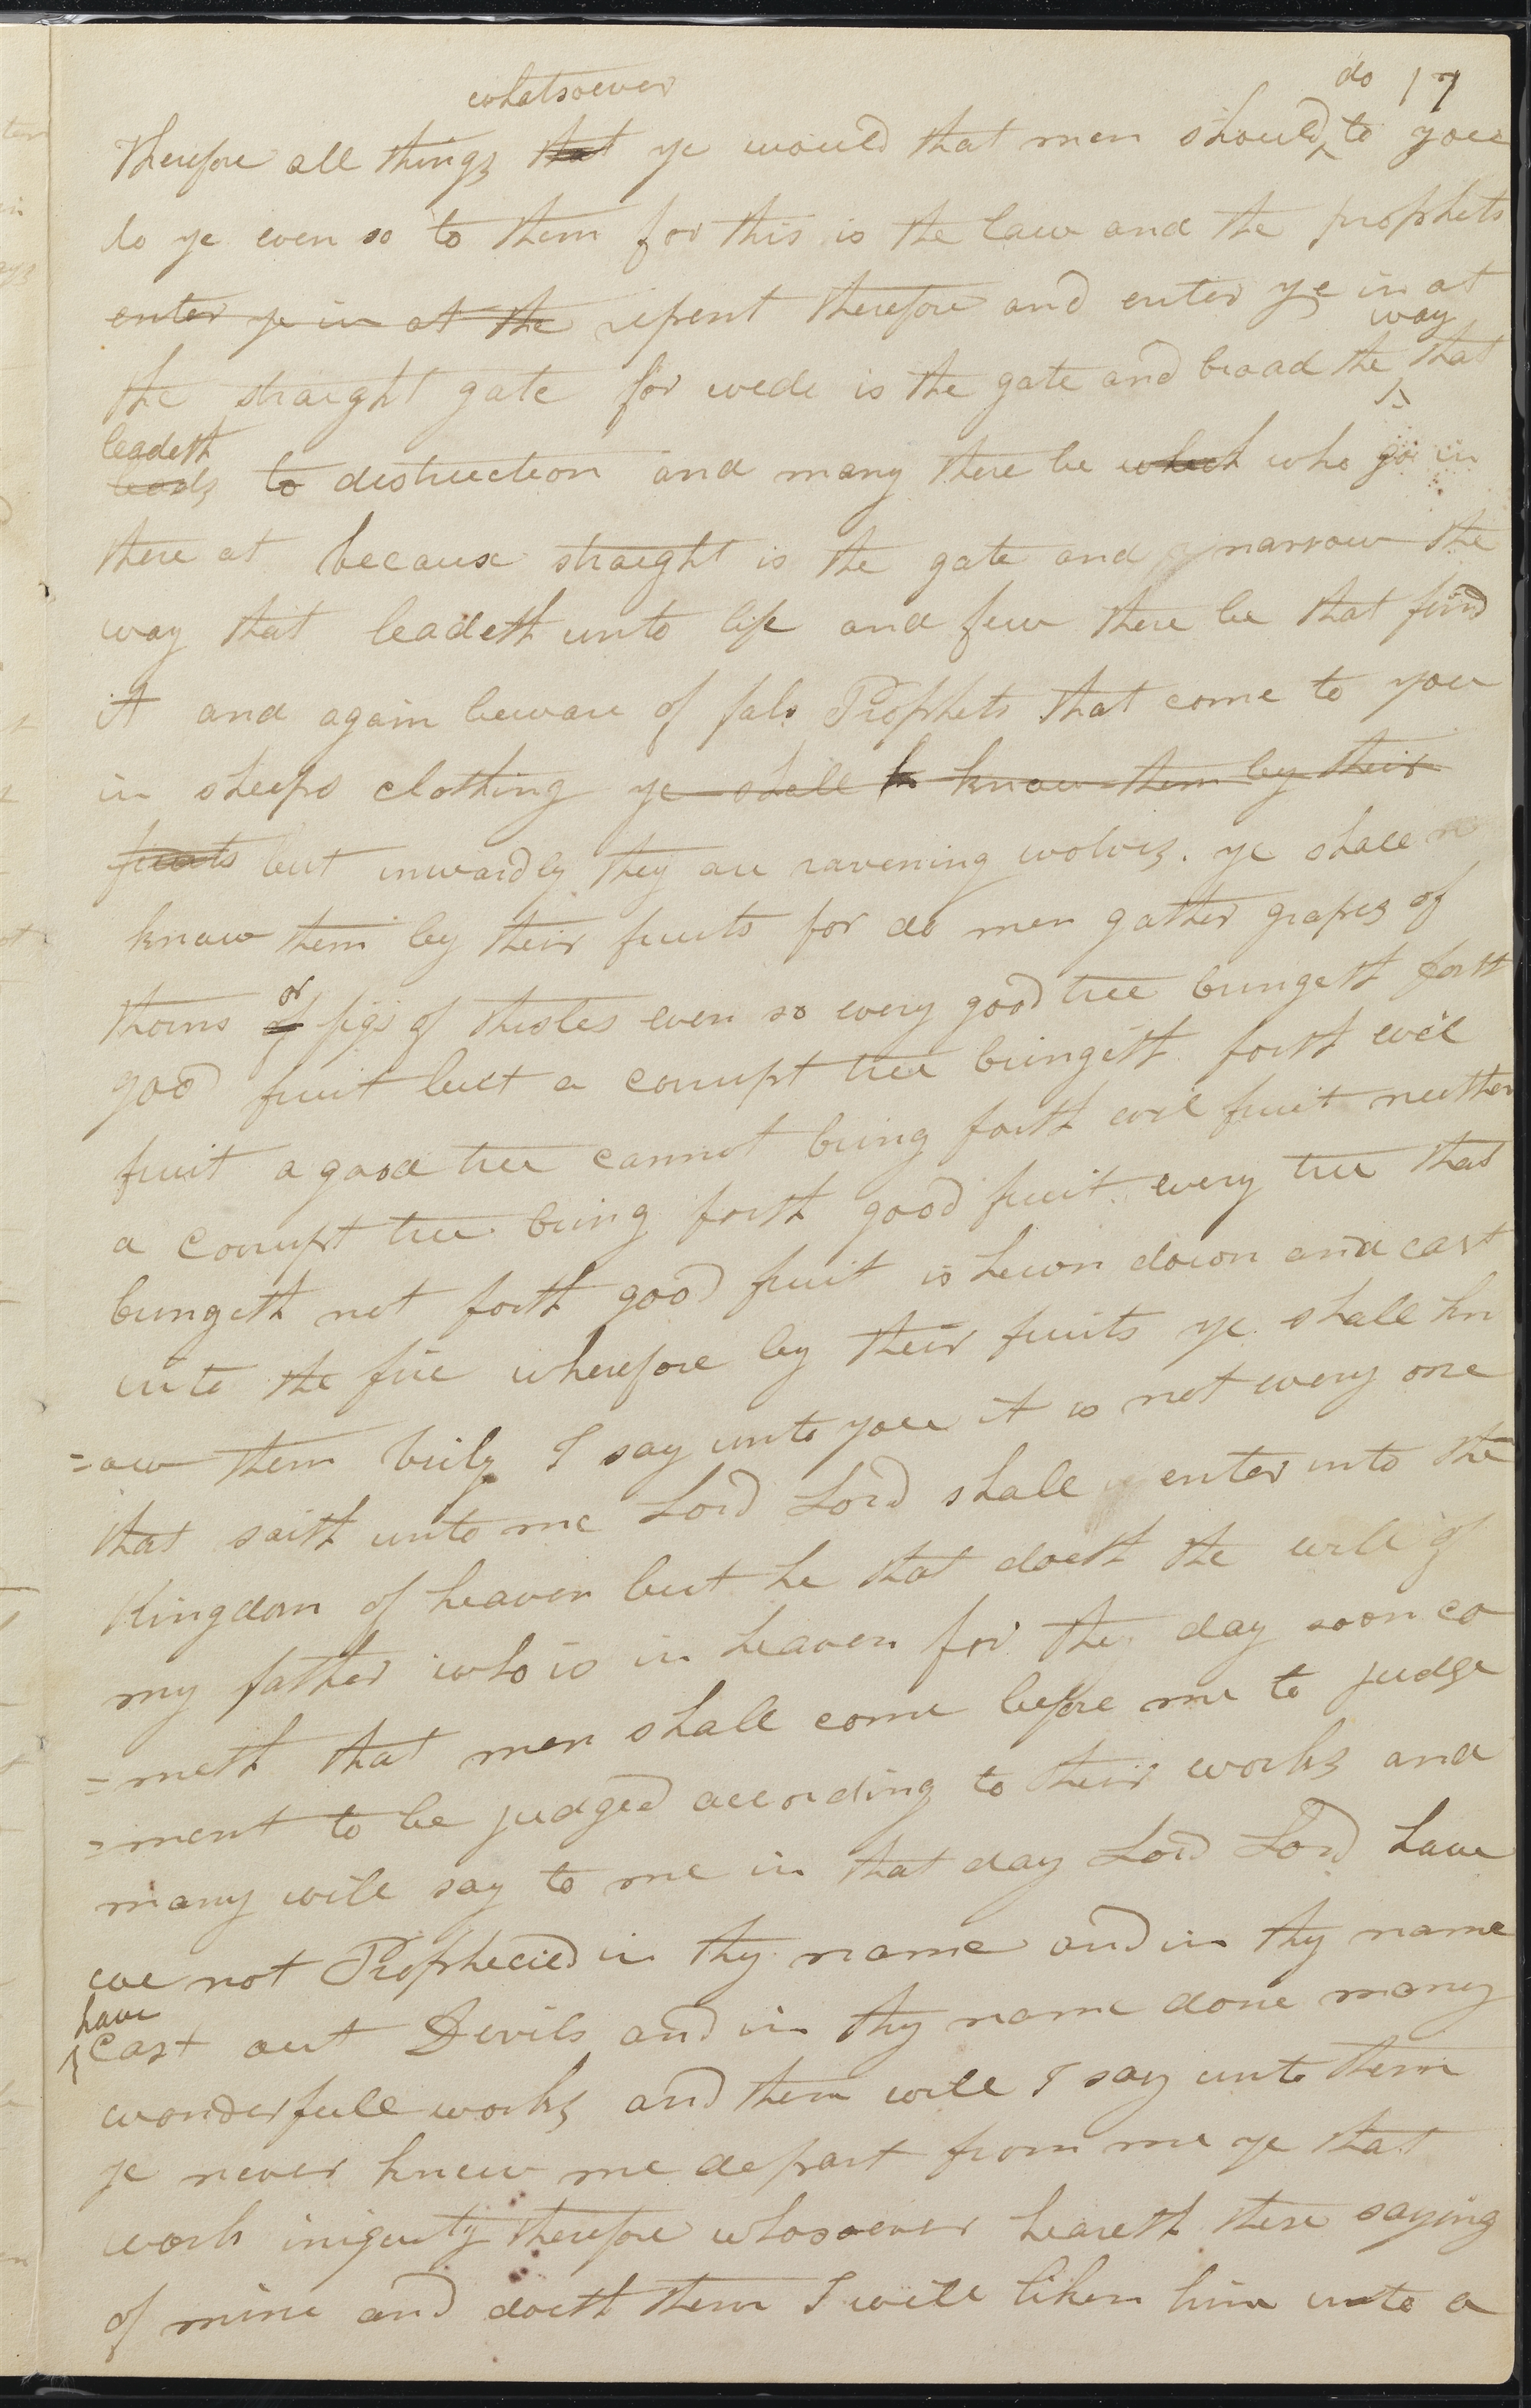 whatsoever do 17
Therefore all things that ye would that men should to you
do ye even so to them for this is the law and the prophets
enter ye in at the repent therefore and enter ye in at
way
the straight gate for wede is the gate and broad the that
leadeth
leads to distruction and many there be which who go in
there at because straight is the gate and narrow the
way that leadeth unto life and few there be that find
it and again beware of fals Prophets that come to you
in sheeps clothing ye shall k know them by their
fruits but inwardly they are ravening wolves. ye shall
know them by their fruits for do men gather grapes of
or
thorns of figs of thistles even so every good tree bringeth forth
good fruit but a corrupt tree bringeth forth evil
fruit a good tree cannot bring forth evil fruit neither
a corrupt tree bring forth good fruit every tree that
bringeth not forth good fruit is hewn down and cast
into the fire wherefore by their fruits ye shall kn
=ow them verily I say unto you it is not every one
that saith unto me Lord Lord shall enter into the
Kingdom of heaven but he that doeth the will of
my father who is in heaven for the day soon co
=meth that men shall come before me to judge
=ment to be judged according to their works and
many will say to me in that day Lord Lord have
we not Prophecied in thy name and in thy name
have
cast out Devils and in thy name done many
wonderfull works and then will I say unto them
ye never knew me depart from me ye that
work iniquity therefore whosoever heareth these saying
of mine and doeth them I will liken him unto a